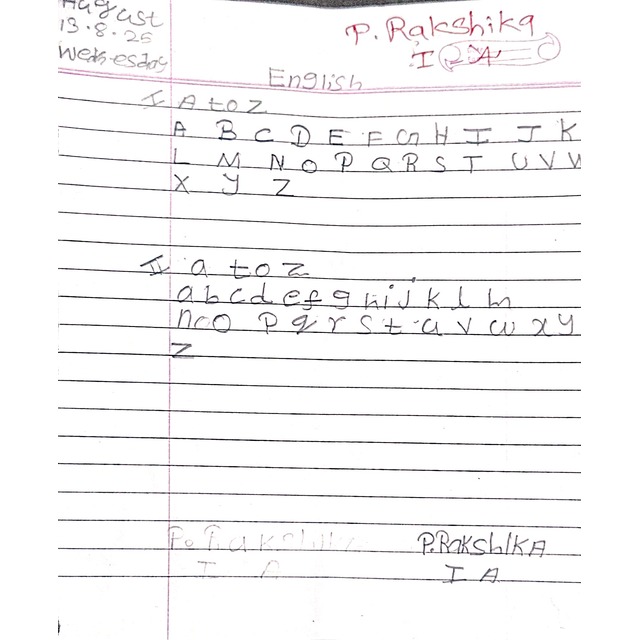 August
13.8.25
Wednesday
P. Rakshika
I A
English
I A to Z
A B C D E F G H I J K
L M N O P Q R S T U V W
X Y Z
II a to z
a b c d e f g h i j k l m
n o p q r s t u v w x y
z
P. Rakshika
I A
P.RAKSHIKA
I A